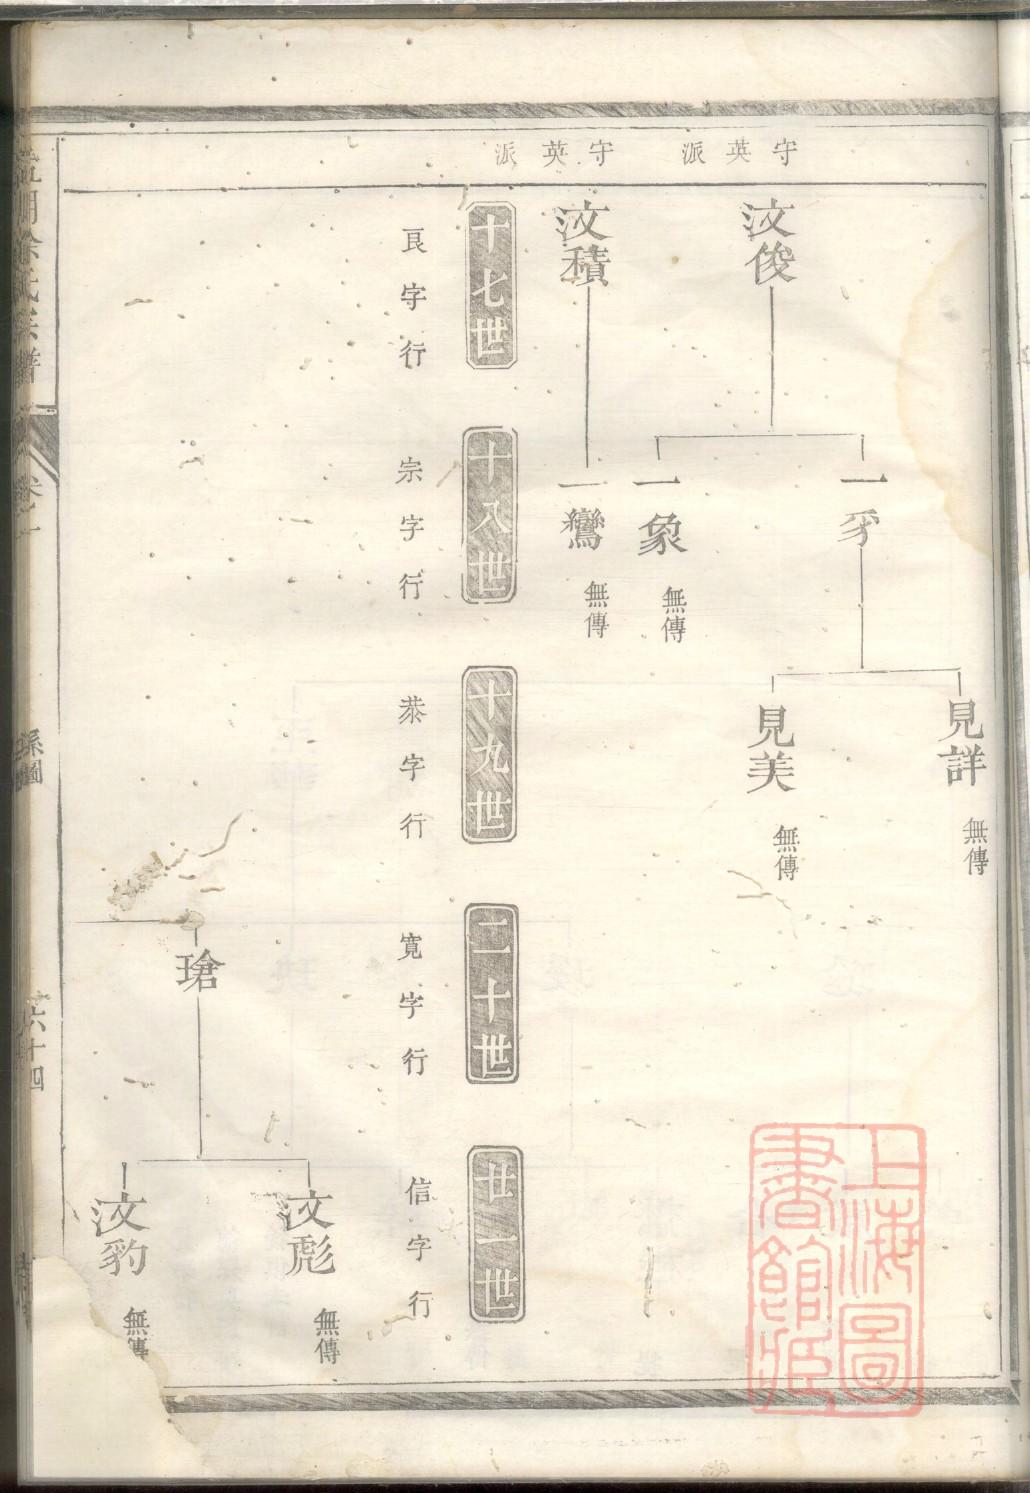 守英派
汶俊
一豸
見詳
無傳
見美
無傳
一象
無傳
守英派
汶積
一鸞
無傳
十七世
十八世
十九世
二十世
廿一世
良字行
宗字行
恭字行
寬字行
信字行
瑲
汶彪
無傳
汶豹
無傳
余氏宗譜
卷二
系圖
六十四
上海圖書館藏